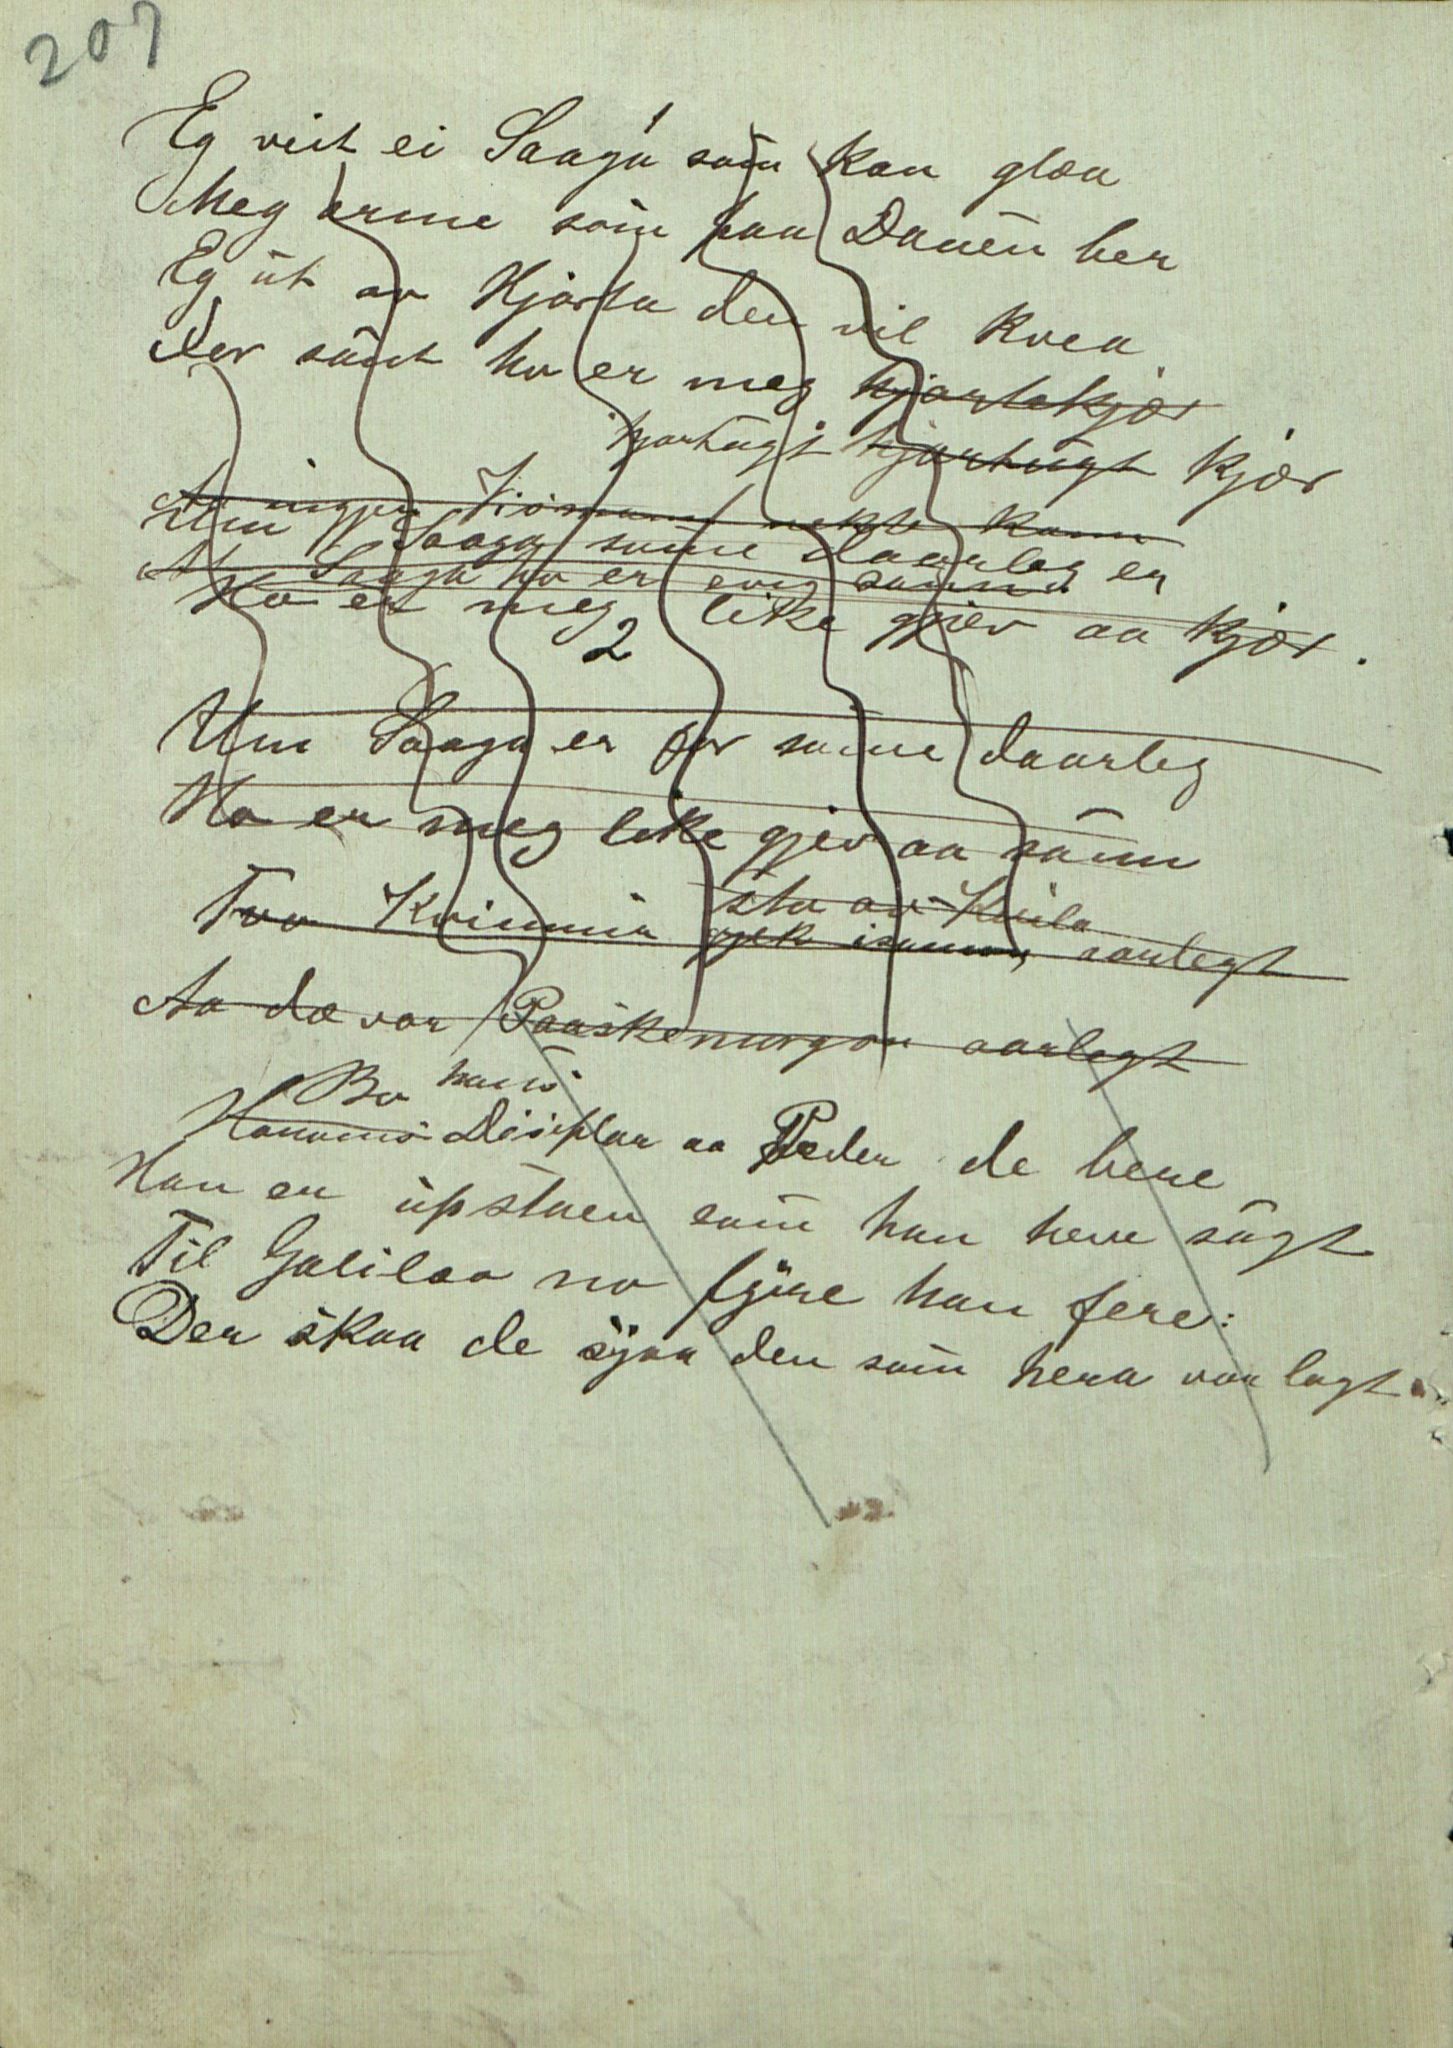 207
Eg veit ei Saaga som kan glæa
Meg arme som paa Dauen ber
Eg ut av Hjarta den vil kvea
Der sumt ho er meg hjartekjær
hjartugt hjartugt kjær
nekte kann
Um Saaga sume daarleg er
Saaga ho er evig sann
Ho er meg like gjæv aa kjær.
2
Um Saaga er for sume daarleg
Ho er meg like gjev aa sann
sto av Kvila
Tvo Kvinnur gjek isaman, aarlegt
Aa dæ var Paaskemorgon aarlegt
Bo hans
Hanoms Disiplar aa Peder de bere
Han er upstaen som han heve sagt
Til Galilæa no fyire han fere:
Der skaa de sjaa den som hera var lagt